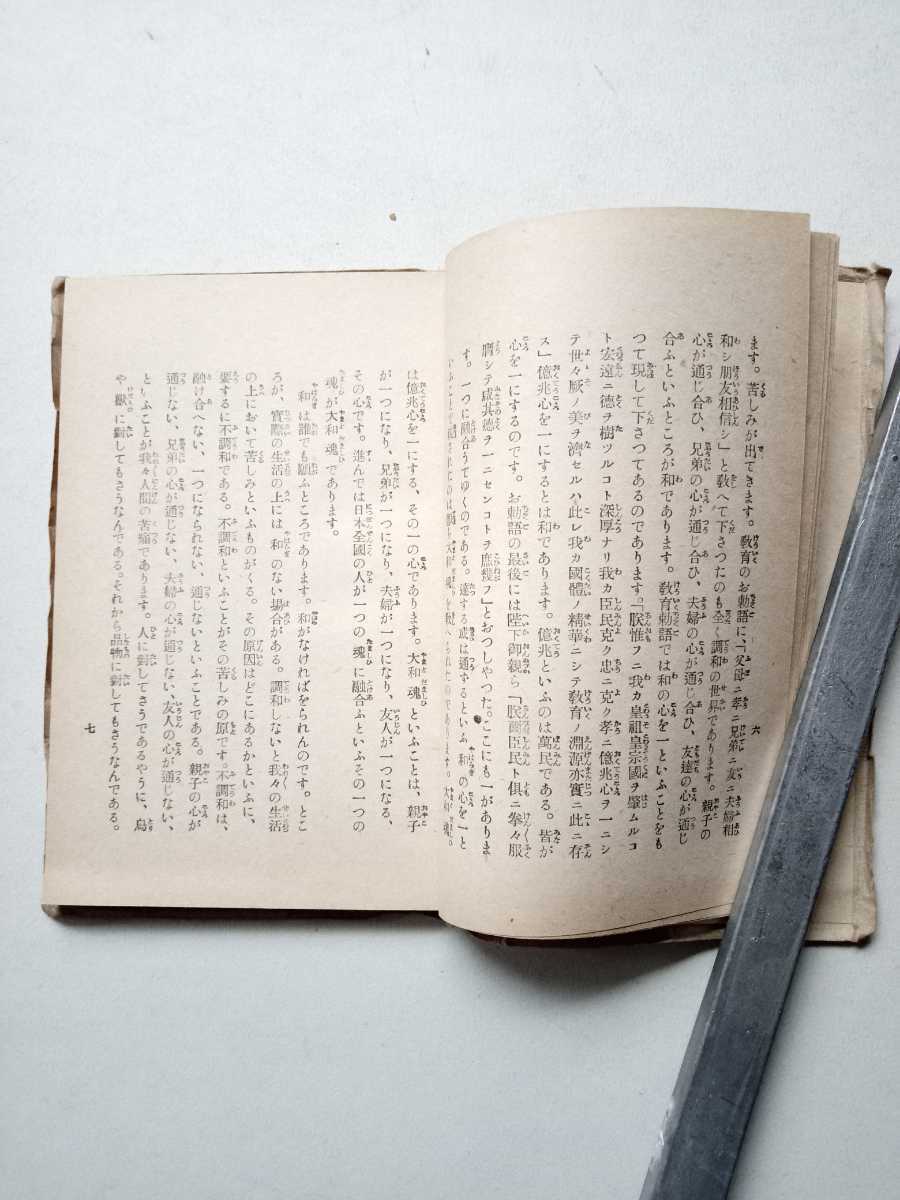 六
ます。苦しみが出てきます。教育のお勅語に、「父母ニ孝ニ兄弟ニ友ニ夫婦相
和シ朋友相信シ」と教へて下さつたのも全く調和の世界であります。親子の
心が通じ合ひ、兄弟の心が通じ合ひ、夫婦の心が通じ合ひ、友達の心が通じ
合ふといふところが和であります。教育勅語では和の心を一といふことをも
つて現して下さつてあるのであります。「朕惟フニ我カ皇祖皇宗國ヲ肇ムルコ
ト宏遠ニ德ヲ樹ツルコト深厚ナリ我カ臣民克ク忠ニ克ク孝ニ億兆心ヲ一ニシ
テ世々厥ノ美ヲ濟セルハ此レ我カ國體ノ精華ニシテ教育ノ淵源亦實ニ此ニ存
ス」億兆心を一にするとは和であります。億兆といふのは萬民である。皆が
心を一にするのです。お勅語の最後には陛下御親ら「朕爾臣民ト俱ニ拳々服
膺シテ咸其德ヲ一ニセンコトヲ庶幾フ」とおつしやつた。ここにも一がありま
す。一つに融合うてゆくのである。達する或は通ずるといふ和の心を一と
のであります。大和魂
は億兆心を一にする、その一の心であります。大和魂といふことは、親子
が一つになり、兄弟が一つになり、夫婦が一つになり、友人が一つになる、
その心です。進んでは日本全國の人が一つの魂に融合ふといふその一つの
魂が大和魂であります。
和は誰でも願ふところであります。和がなければをられんのです。とこ
ろが、實際の生活の上には和のない場合がある。調和しないと我々の生活
の上において苦しみといふものがくる。その原因はどこにあるかといふに、
要するに不調和である。不調和といふことがその苦しみの原です。不調和は、
融け合へない、一つになられない、通じないといふことである。親子の心が
通じない、兄弟の心が通じない、夫婦の心が通じない、友人の心が通じない、
といふことが我々人間の苦痛であります。人に對してさうであるやうに、鳥
や獸に對してもさうなんである。それから品物に對してもさうなんである。
七